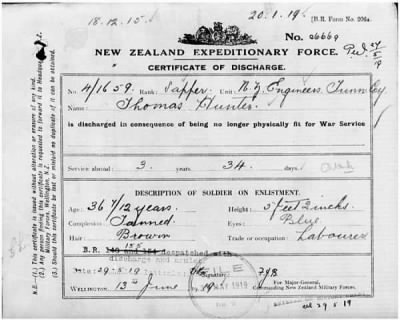 18.12.15 20.1.19
[B.R. Form No. 206a.
No. 26669
NEW ZEALAND EXPEDITIONARY FORCE.
CERTIFICATE OF DISCHARGE.
No. 4/1659. Rank: Sapper Unit: N.Z. Engineers, Tunnlg
Name: Thomas Hunter
is discharged in consequence of being no longer physically fit for War Service
Service abroad: 3 years. 34 days.
DESCRIPTION OF SOLDIER ON ENLISTMENT.
Age: 36 7/12 years Height: 5 feet inchs
Complexion: Tanned Eyes: Blue
Hair: Brown Trade or occupation: Labourer
B.R. 155 despatched with
discharge and
Date: 29.5.19
WELLINGTON, 13th June, 19
For Major-General,
Commanding New Zealand Military Forces.
29 5 19
N.B.—(1.) This certificate is issued without alteration or erasure of any kind.
(2.) Any person finding this certificate is requested to forward it to Headquarters, N.Z.
Military Forces, Wellington, N.Z.
(3.) Should this certificate be lost or mislaid no duplicate of it can be obtained.